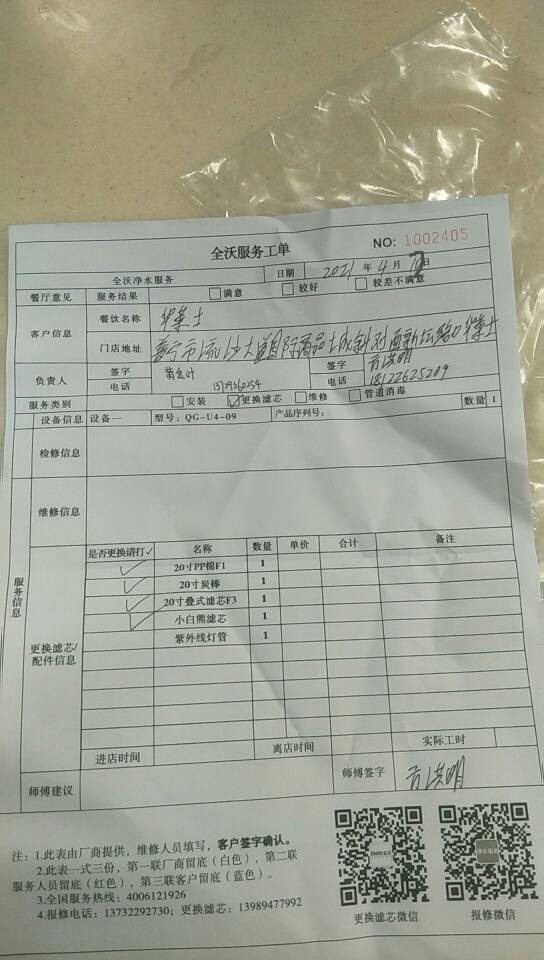 全沃服务工单
NO: 1002405
全沃净水服务 日期 2021 年 4 月 日
餐厅意见 服务结果 满意 较好 较差不满意
客户信息 餐饮名称 华莱士
门店地址 普宁市流沙大道国际商品城斜对面新坛路口华莱士
负责人 签字 黄金叶 签字 方洪明
电话 13729360254 电话 18122625209
服务类别 安装 ✓更换滤芯 维修 管道消毒
设备信息 设备一 型号：QG-U4-09 产品序列号： 数量 1
检修信息
维修信息
服务信息
更换滤芯/配件信息
是否更换请打✓ 名称 数量 单价 合计 备注
✓ 20寸PP棉F1 1
✓ 20寸炭棒 1
✓ 20寸叠式滤芯F3 1
✓ 小白熊滤芯 1
紫外线灯管 1
进店时间 离店时间 实际工时
师傅建议 师傅签字 方洪明
注：1.此表由厂商提供，维修人员填写，客户签字确认。
2.此表一式三份，第一联厂商留底（白色），第二联
服务人员留底（红色），第三联客户留底（蓝色）。
3.全国服务热线：4006121926
4.报修电话：13732292730；更换滤芯：13989477992
更换滤芯微信 报修微信